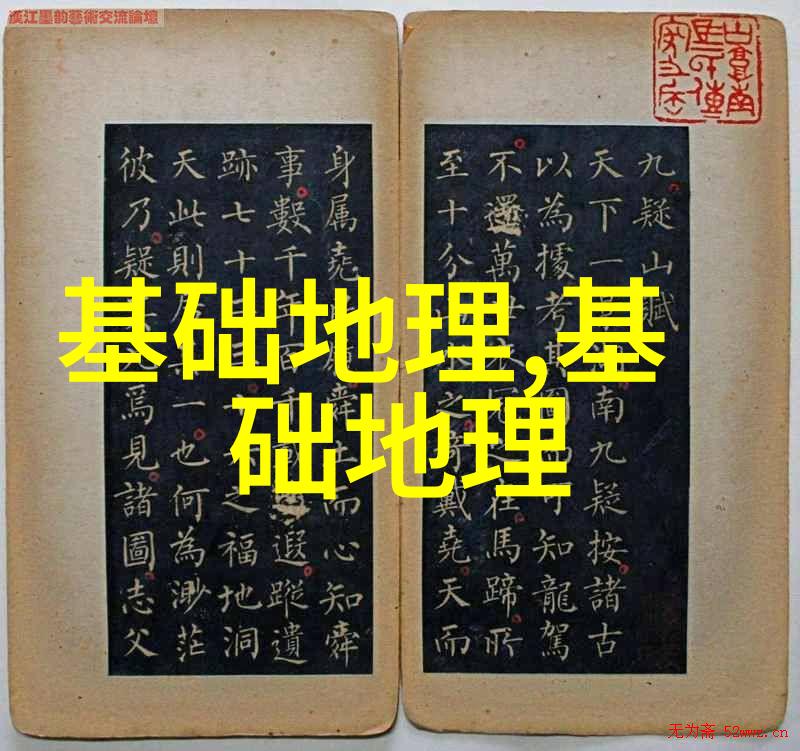 漢江墨韵藝術交流論壇
基础地理,基
础地理
九疑山賦
天下一南九疑按諸古
以為據考其可知龍駕
不還萬在馬蹄所
至十分之奇戴堯天而
身属堯舜土而心知舜
事數千年百千遐蹤遺
跡七十之福地洞
天此則一也何為渺茫
彼乃疑為見諸圖志父
无为斋 52wwz.cn